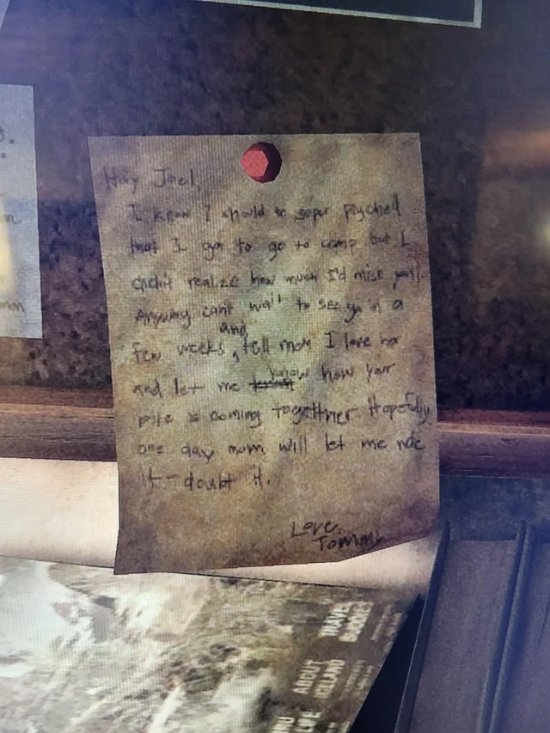 Hey Joel,
I know I should be super psyched
that I got to go to camp but I
didn't realize how much I'd miss yall.
Anyway cant wait to see ya in a
and
few weeks, tell mom I love her
know
and let me how your
bike is coming together Hopefully
one day mom will let me ride
it - doubt it.
Love,
Tommy
TRAVEL
ABOUT
ICELAND